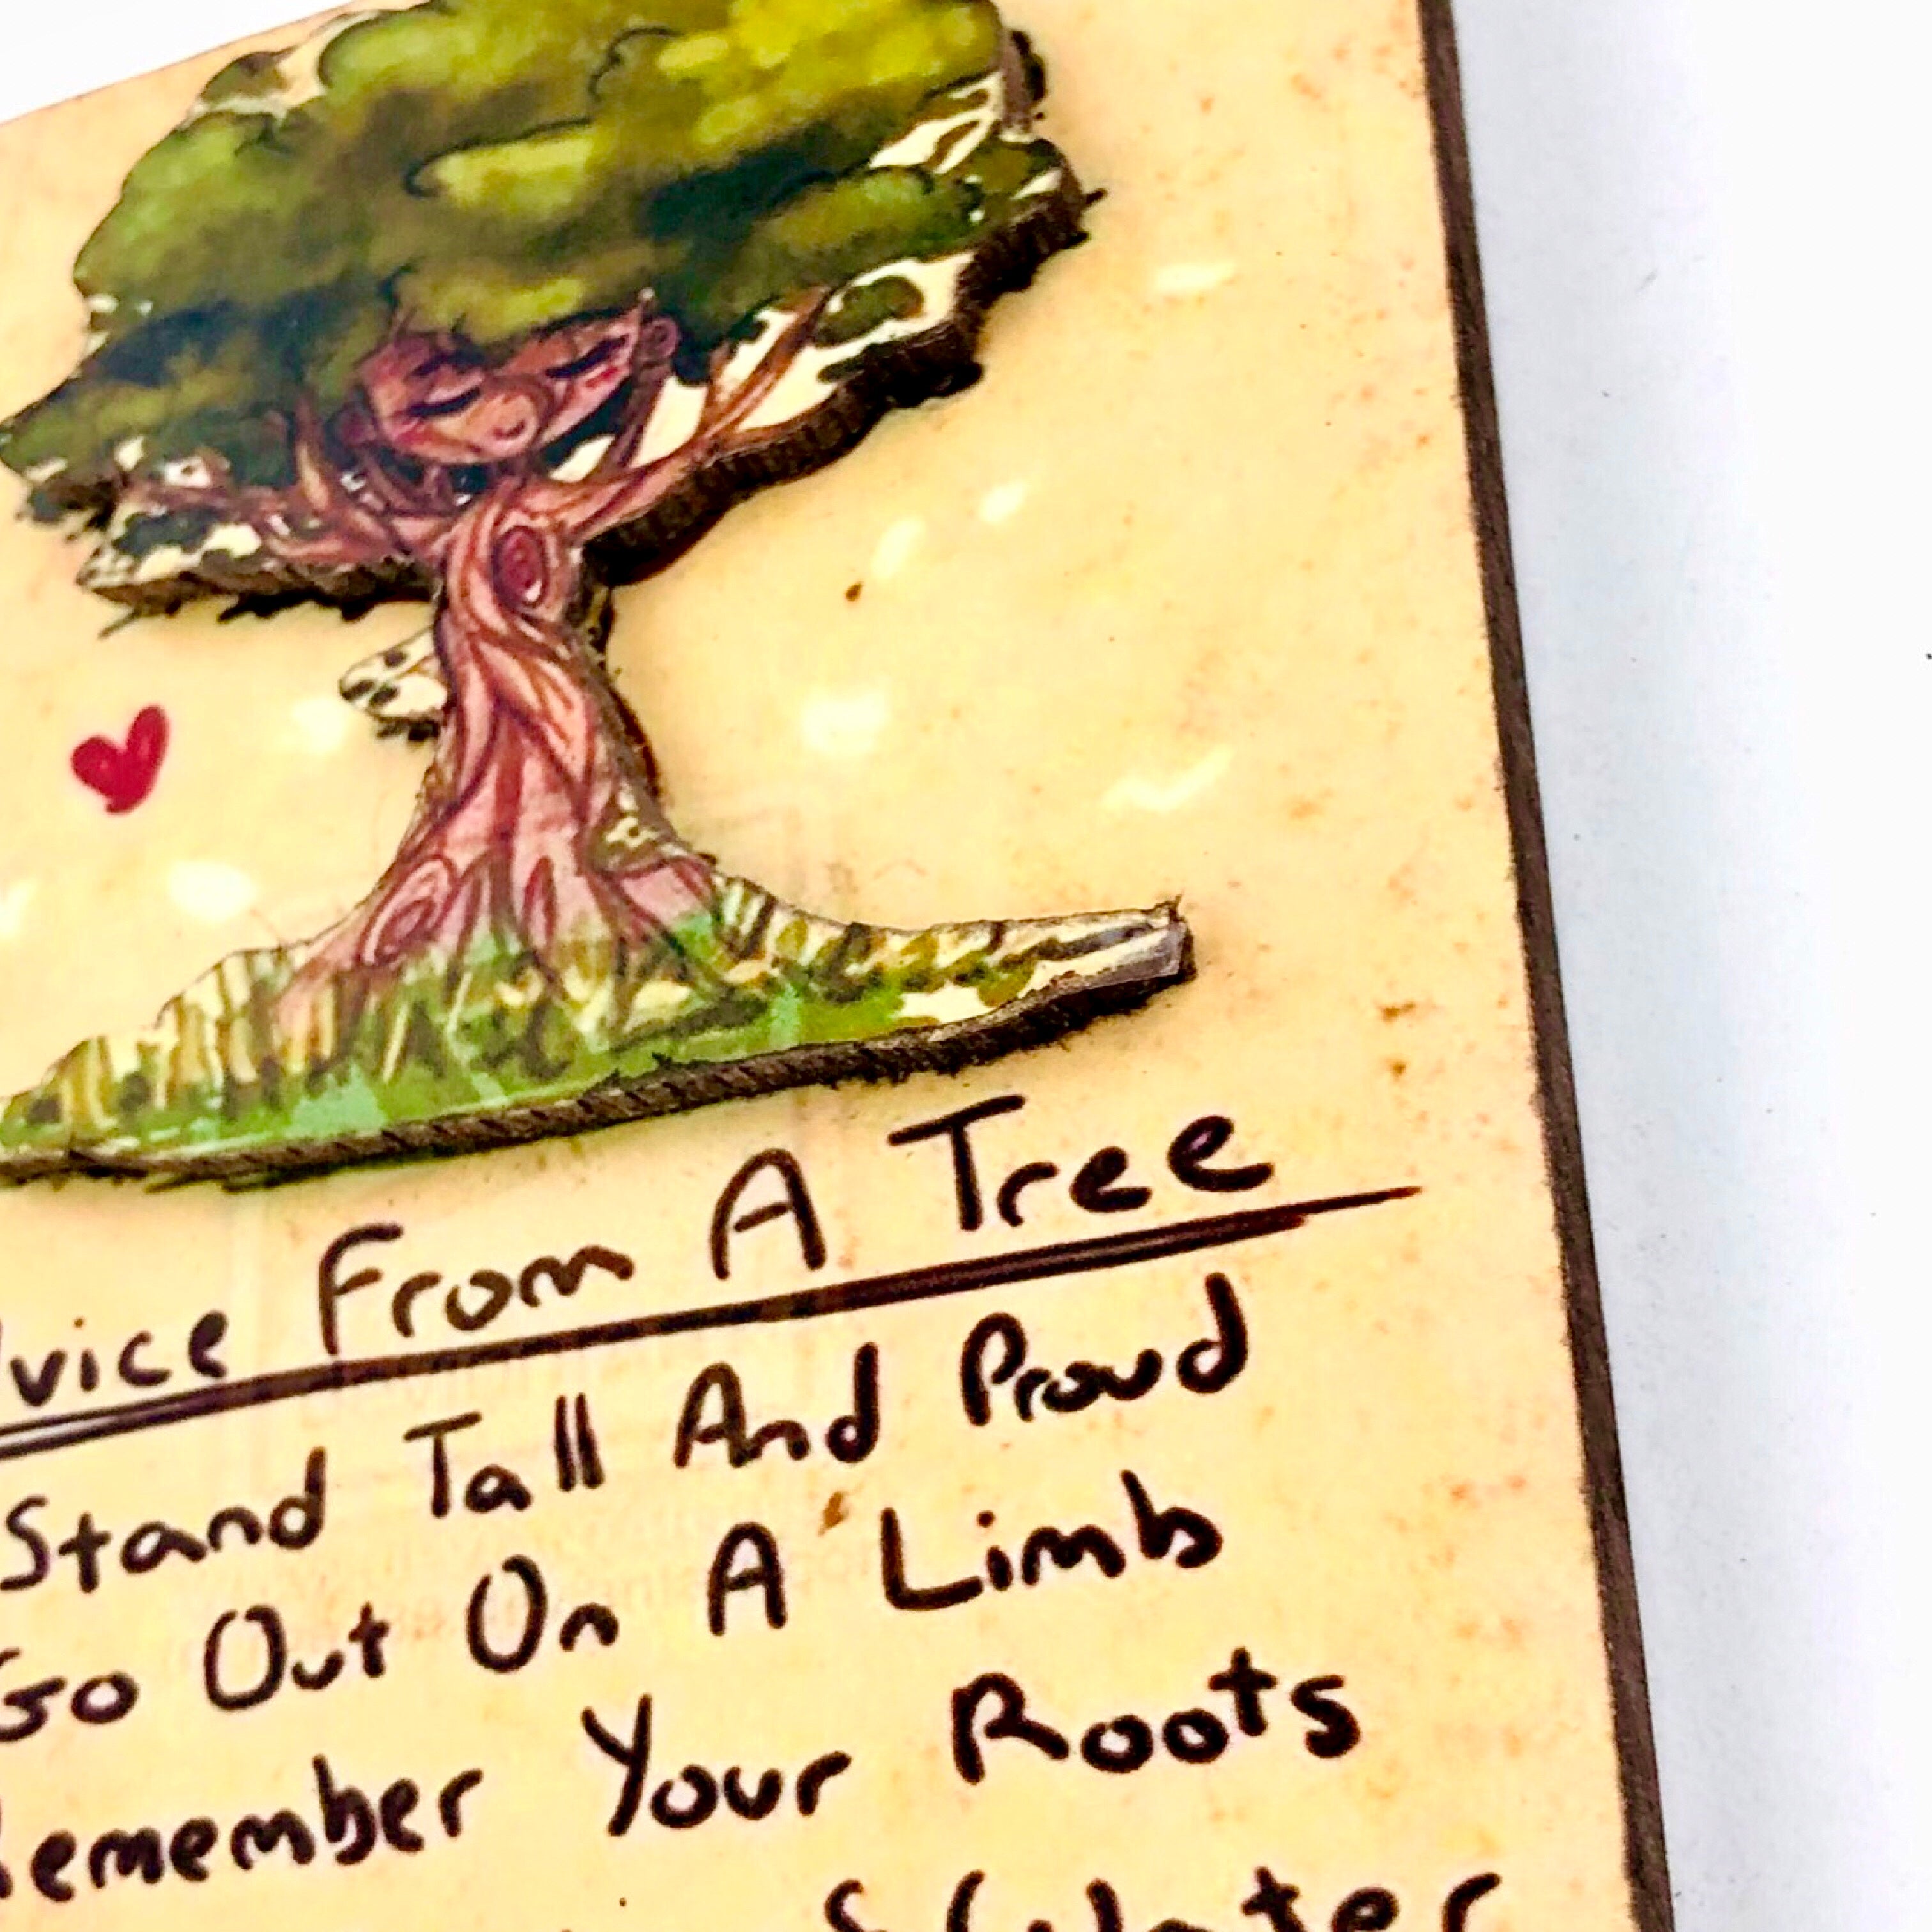 vice From A Tree
Stand Tall And Proud
Go Out On A Limb
Remember Your Roots
Water